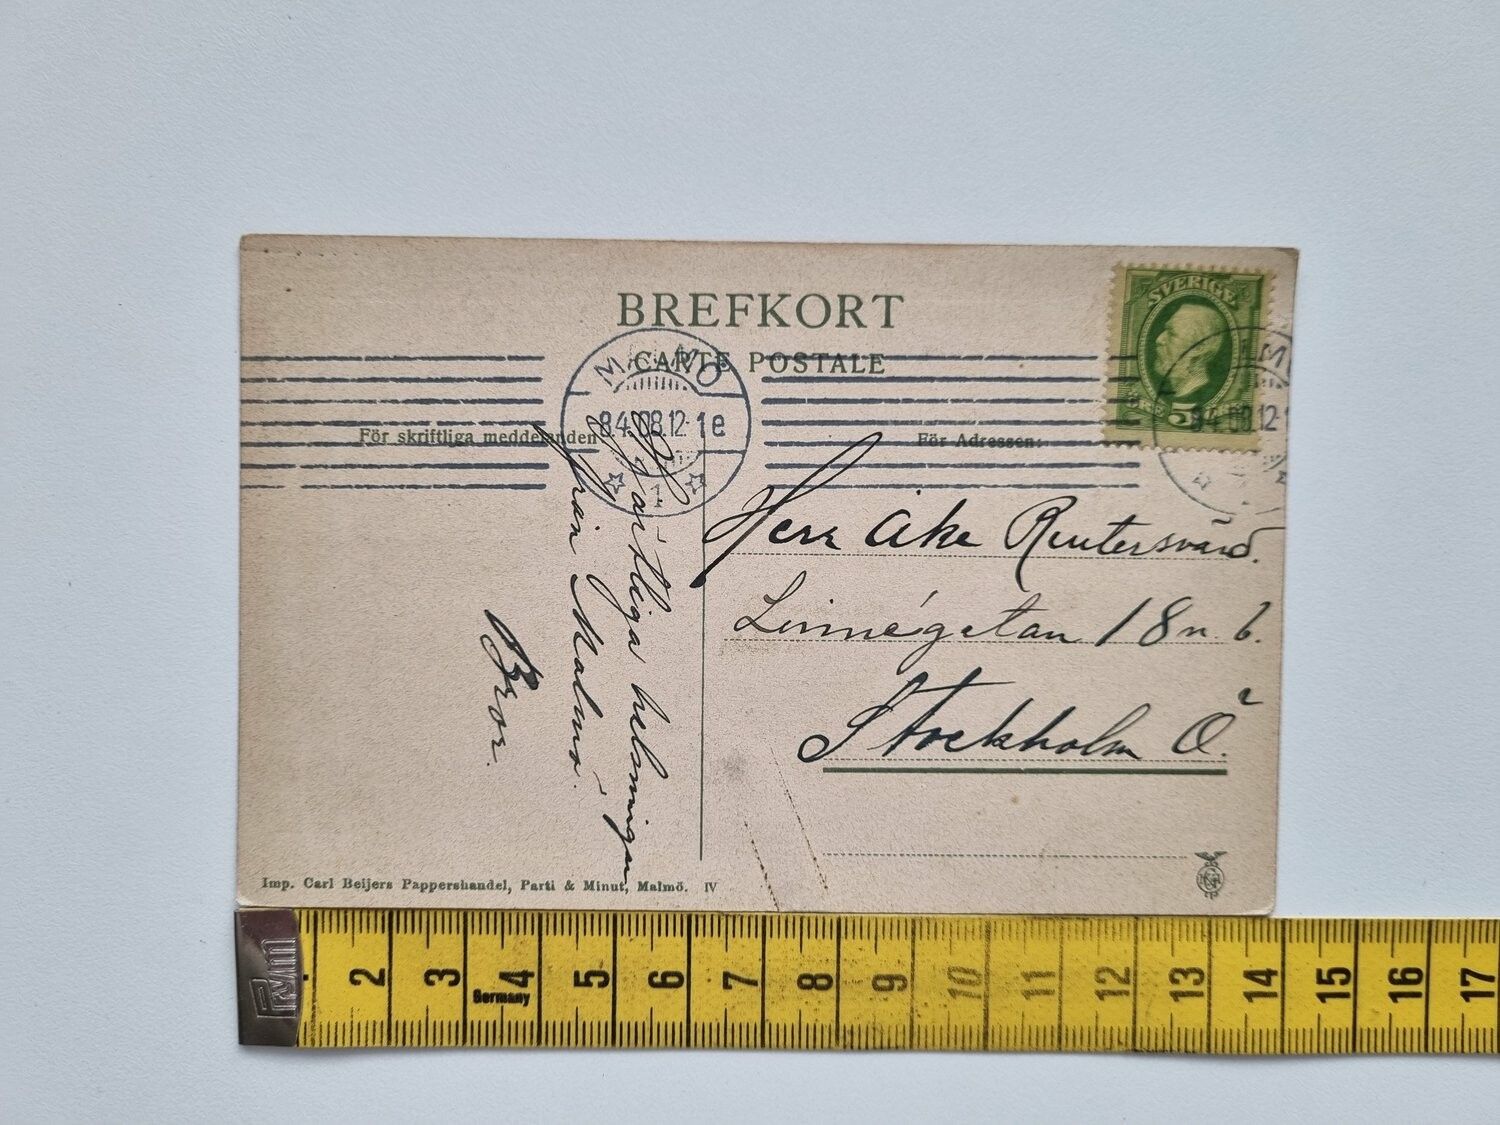 BREFKORT
CARTE POSTALE
MALMÖ
8.4.08.12-1e
1
SVERIGE
ÖRE 5
84.08.12-1
För skriftliga meddelanden
För Adressen:
Hjärtliga helsningar
från Malmö.
Bror.
Herr Åke Reutersvärd.
Linnégatan 18 n. b.
Stockholm Ö.
Imp. Carl Beijers Pappershandel, Parti & Minut, Malmö. IV
2 3 4 5 6 7 8 9 10 11 12 13 14 15 16 17
Germany